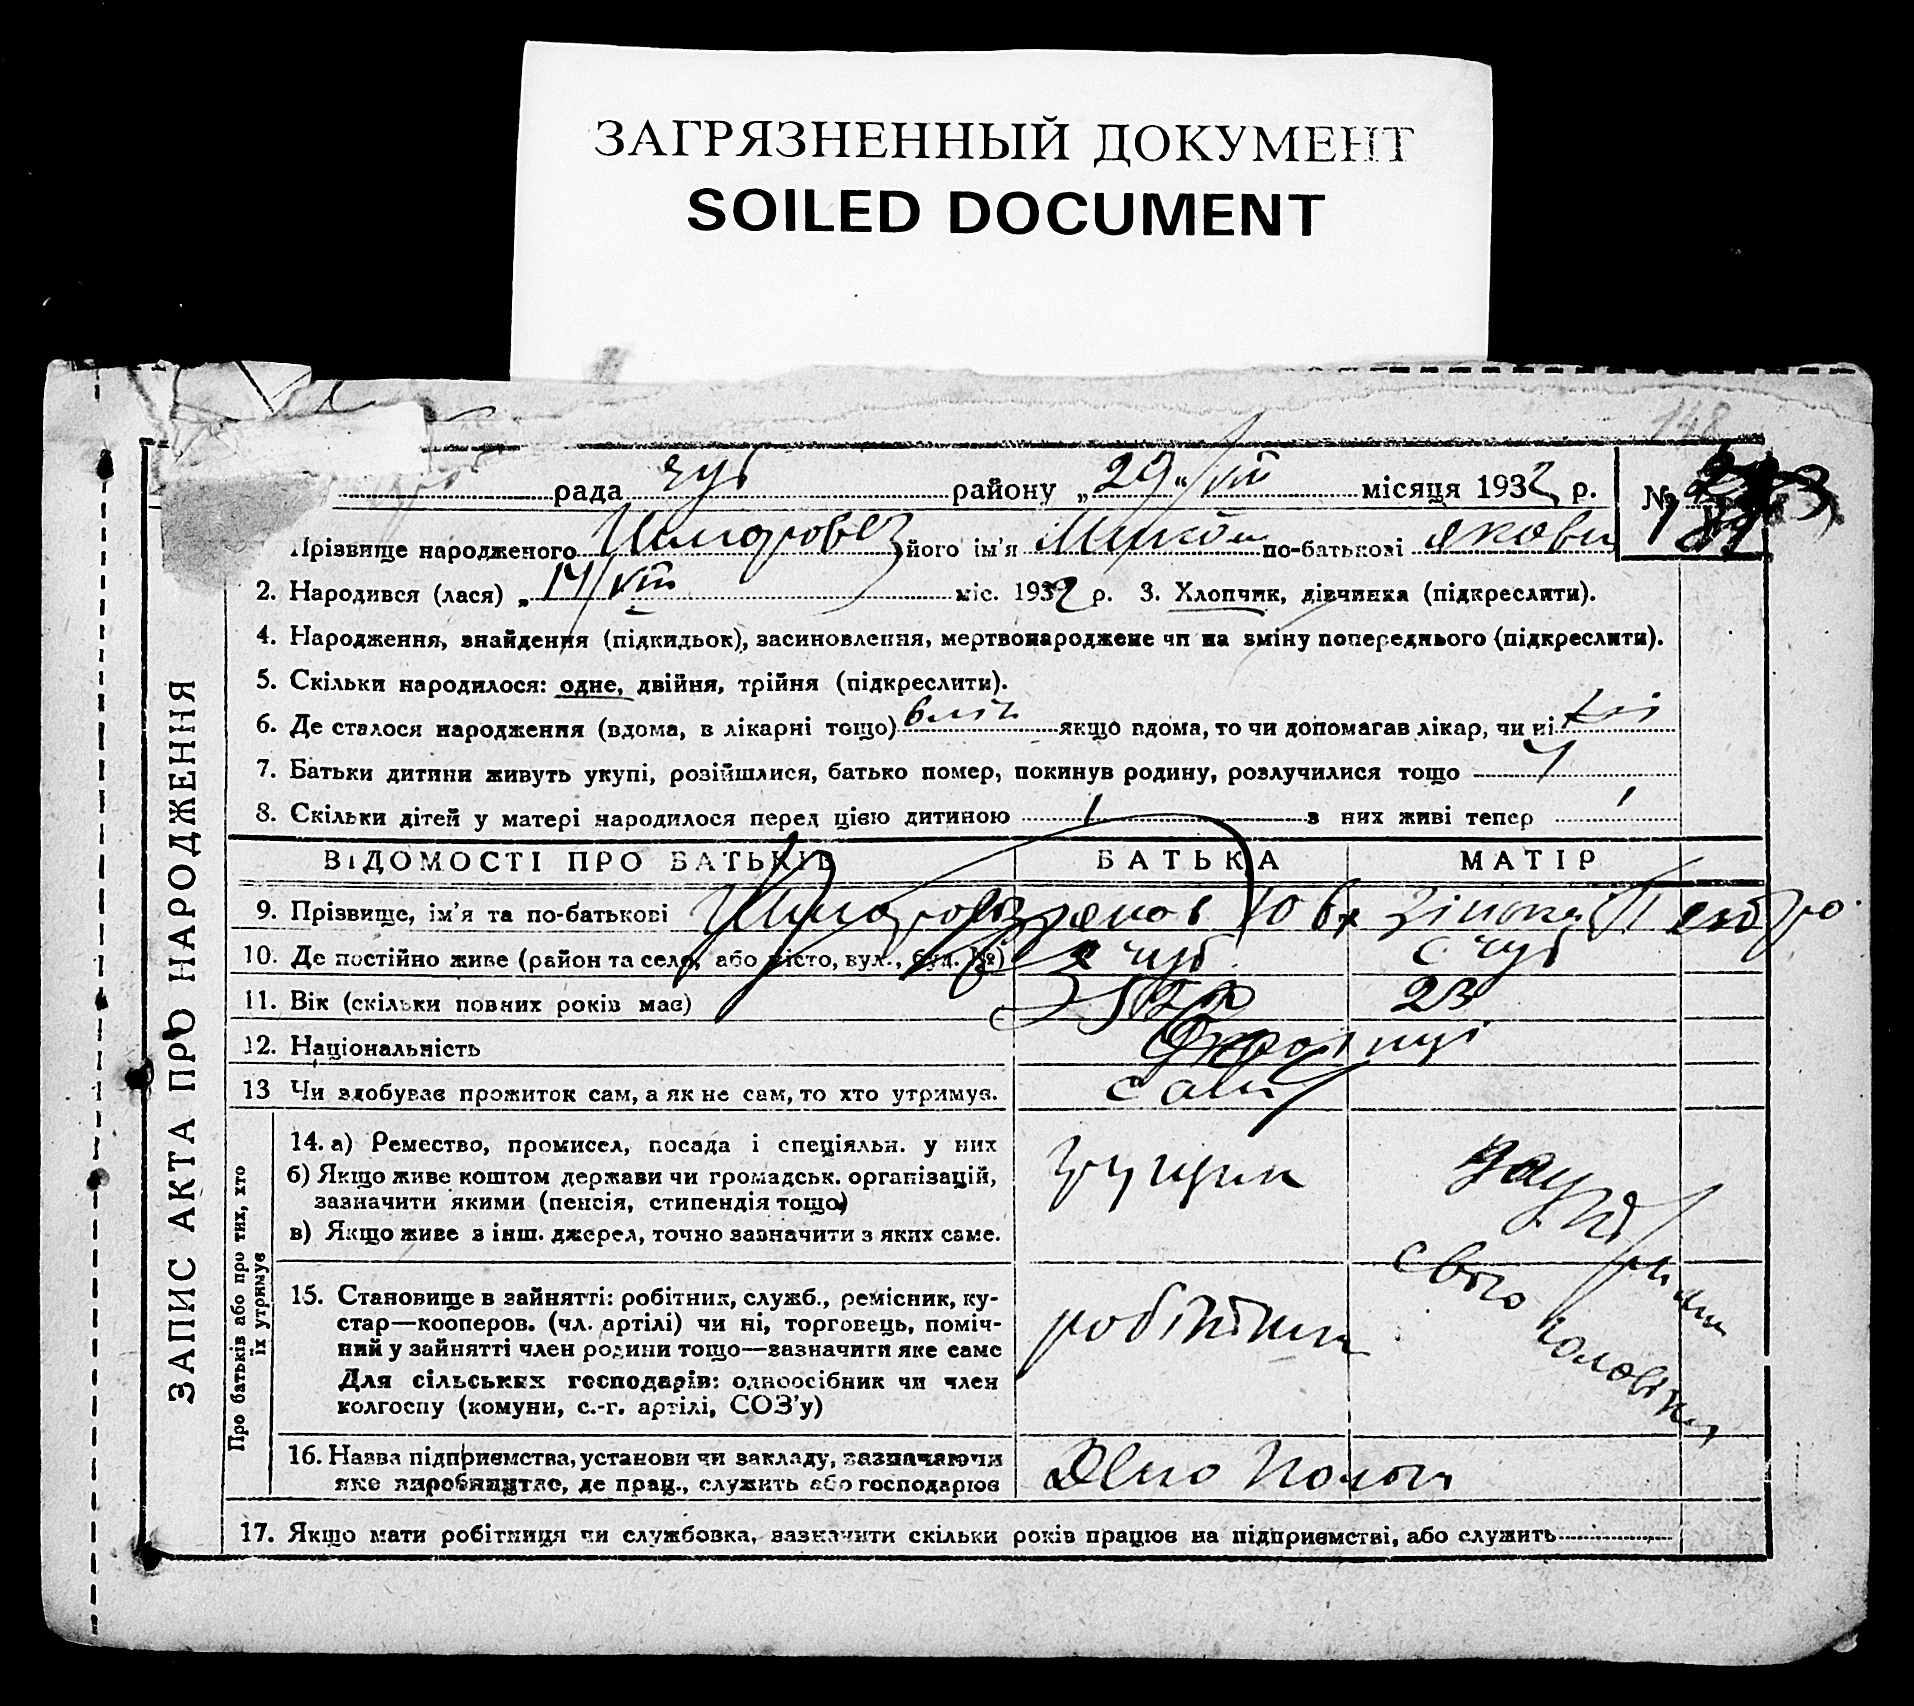 ЗАГРЯЗНЕННЫЙ ДОКУМЕНТ
SOILED DOCUMENT
148
рада Чуб району „29“ VIII місяця 1932 р. №
189
Прізвище народженого його ім'я по-батькові Якович
2. Народився (лася) „14/VIII міс. 1932 р. 3. Хлопчик, дівчинка (підкреслити).
4. Народження, знайдення (підкидьок), засиновлення, мертвонароджене чи на зміну попереднього (підкреслити).
5. Скільки народилося: одне, двійня, трійня (підкреслити).
6. Де сталося народження (вдома, в лікарні тощо) якщо вдома, то чи допомагав лікар, чи ні
7. Батьки дитини живуть укупі, розійшлися, батько помер, покинув родину, розлучилися тощо у
8. Скільки дітей у матері народилося перед цією дитиною 1 з них живі тепер 1
ЗАПИС АКТА ПРО НАРОДЖЕННЯ
ВІДОМОСТІ ПРО БАТЬКІВ БАТЬКА МАТІР
9. Прізвище, ім'я та по-батькові
10. Де постійно живе (район та село, або місто, вул., буд. №) с Чуб с Чуб
11. Вік (скільки повних років має) 23
12. Національність Українці
13 Чи здобуває прожиток сам, а як не сам, то хто утримує. сам
Про батьків або про тих, хто їх утримує
14. а) Ремество, промисел, посада і спеціяльн. у них
б) Якщо живе коштом держави чи громадськ. організацій,
зазначити якими (пенсія, стипендія тощо)
в) Якщо живе з інш. джерел, точно зазначити з яких саме.
грущик
на утриманні
свого чоловіка
15. Становище в зайнятті: робітник, служб., ремісник, ку-
стар—кооперов. (чл. артілі) чи ні, торговець, поміч-
ний у зайнятті член родини тощо—зазначити яке саме
Для сільських господарів: одноосібник чи член
колгоспу (комуни, с.-г. артілі, СОЗ'у)
робітник
16. Назва підприємства, установи чи закладу, зазначаючи
яке виробництво, де прац., служить або господарює
Депо
17. Якщо мати робітниця чи службовка, зазначити скільки років працює на підприємстві, або служить